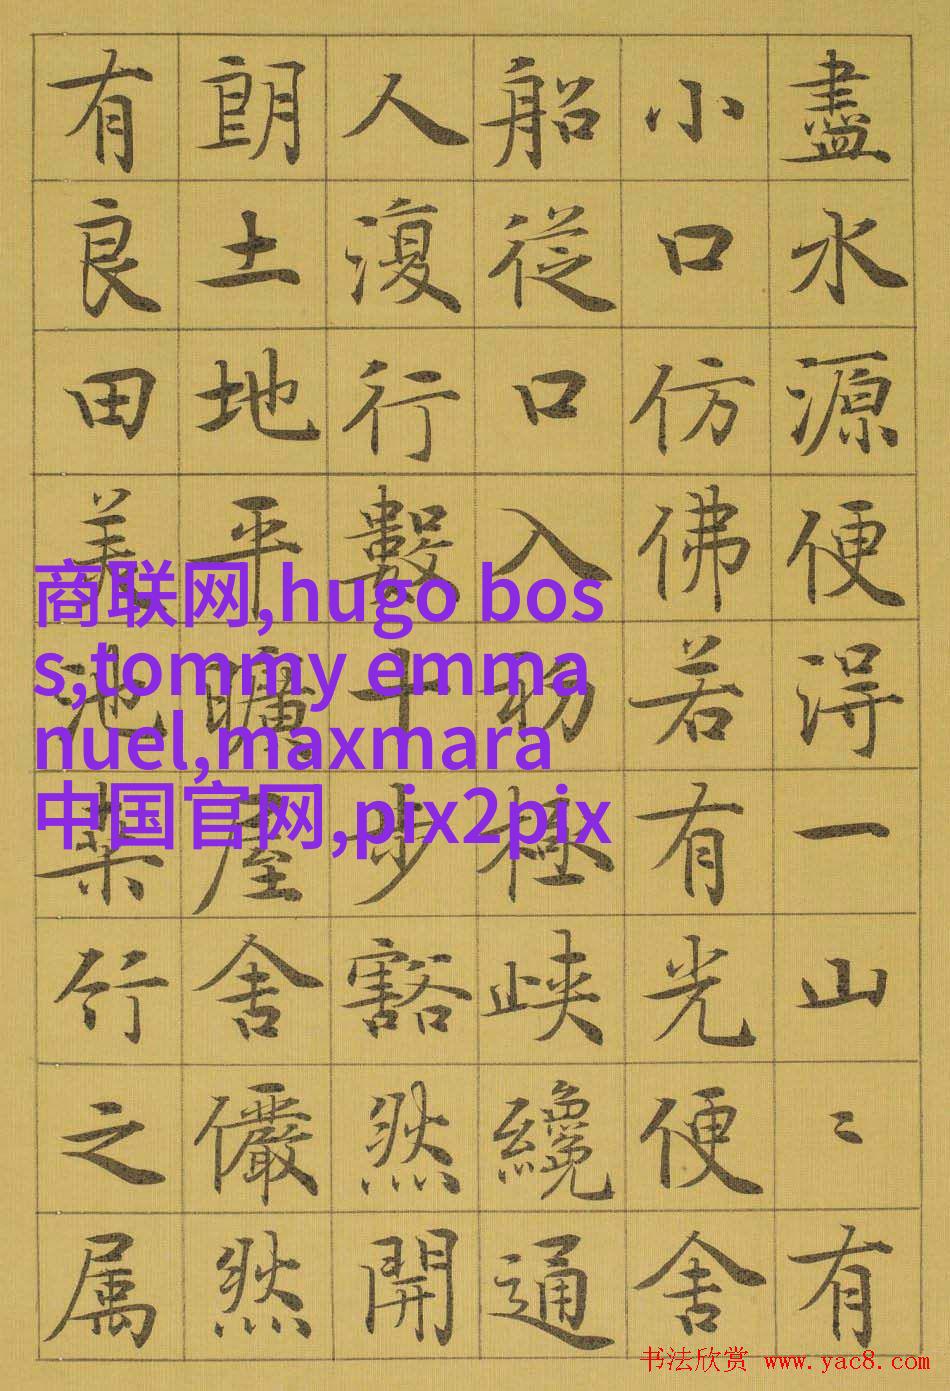 盡水源便得一山〻有
小口仿佛若有光便舍
船從口入初極峽纔通
人復行數十步豁然開
朗土地平曠屋舍儼然
有良田美池桑竹之属
商联网,hugo bos
s,tommy emma
nuel,maxmara
中国官网,pix2pix
书法欣赏 www.yac8.com